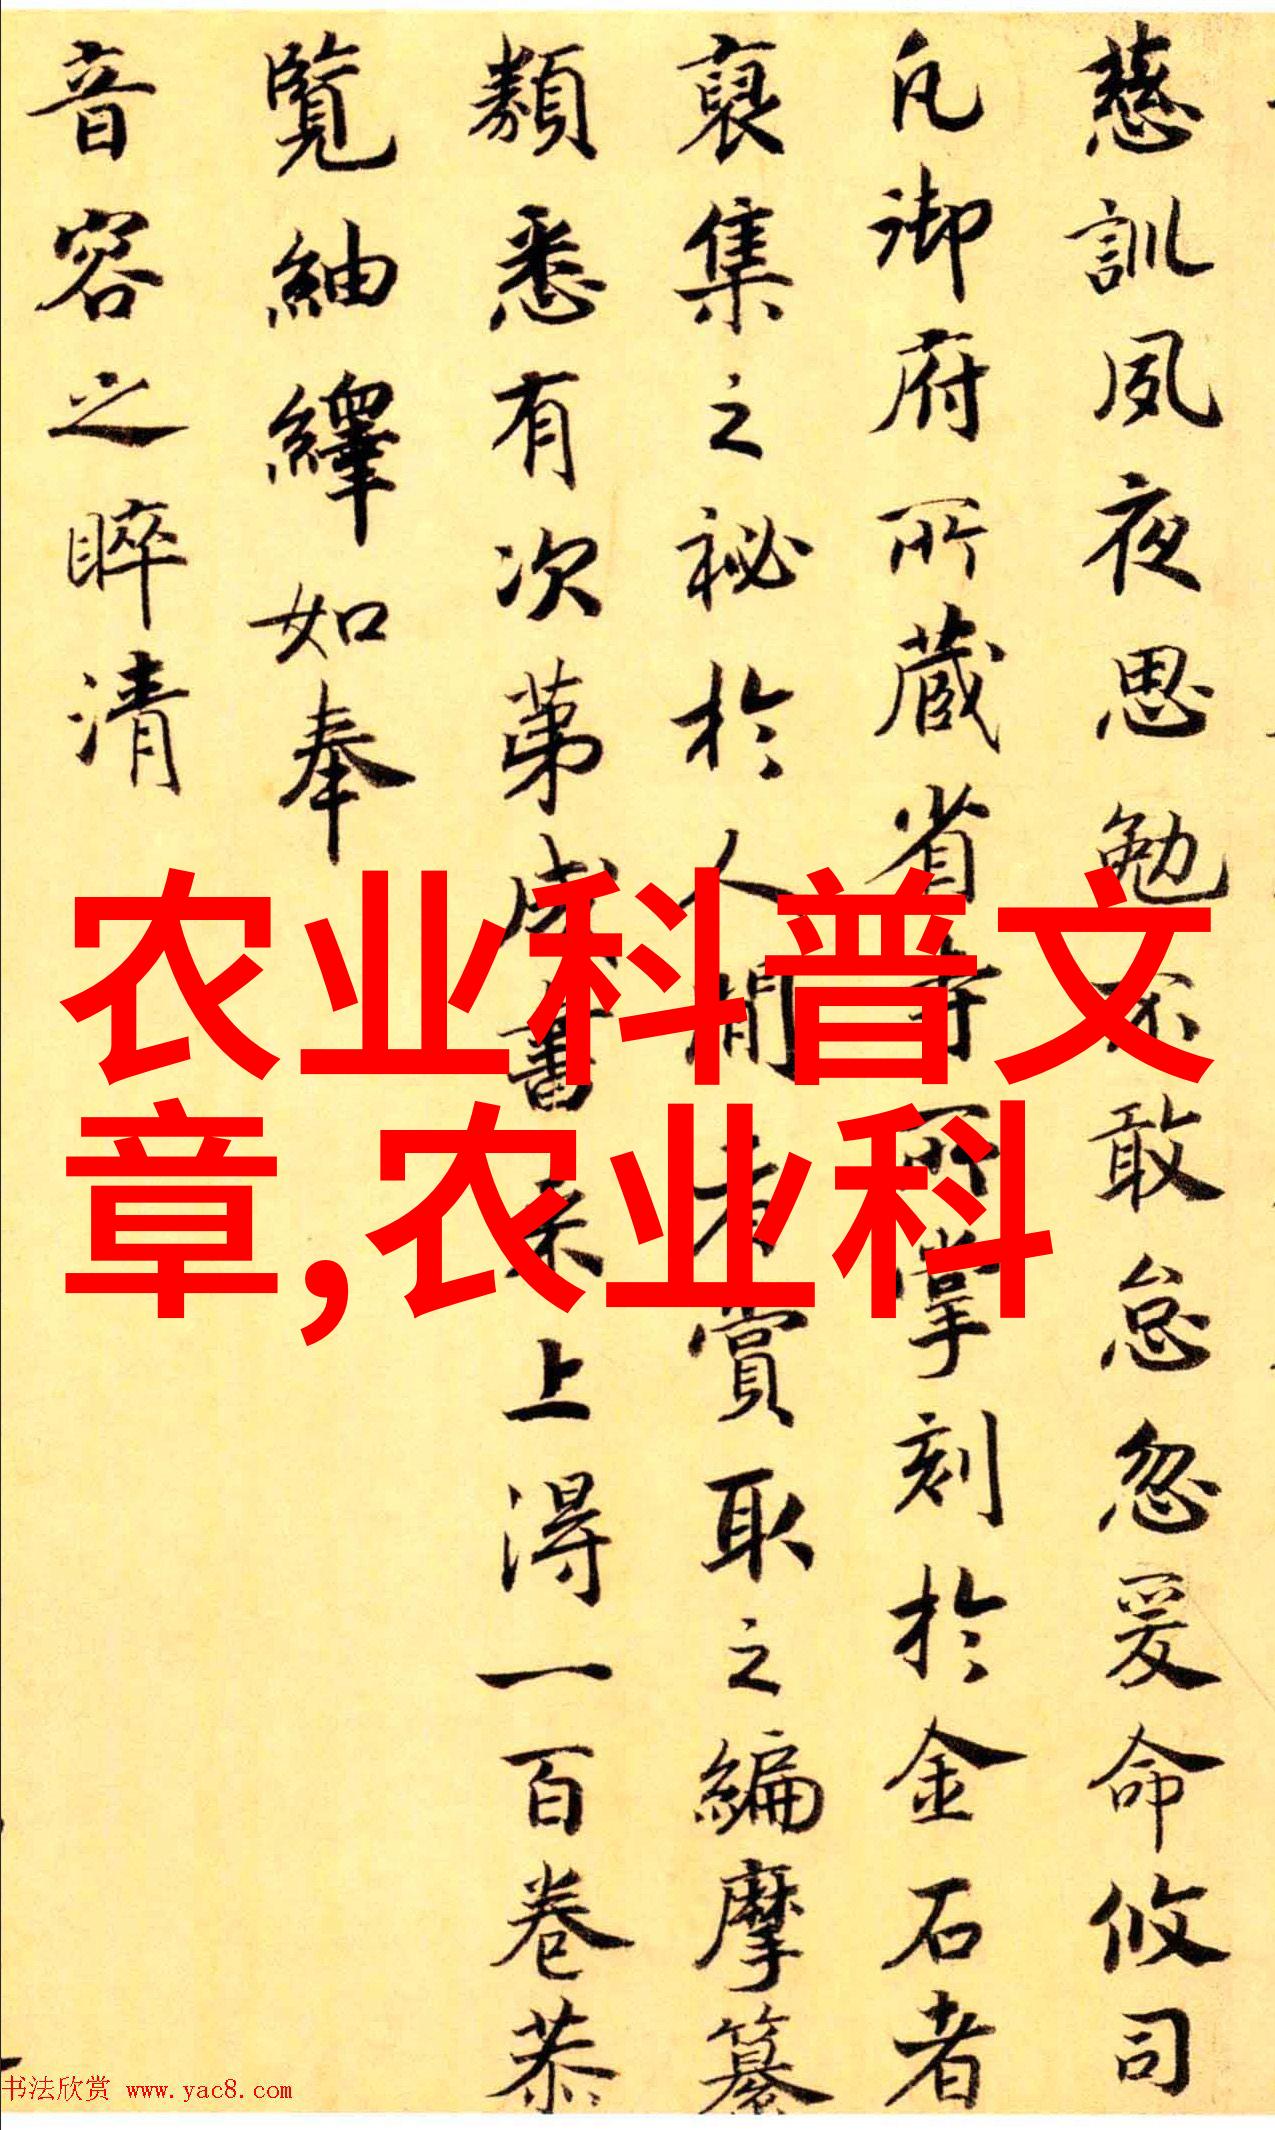 慈訓夙夜思勉不敢怠忽爰命攸司
凡御府所藏省寺所掌刻於金石者
裒集之祕於人間者賞取之編摩纂
類悉有次第成書来上得一百卷恭
覽紬繹如奉
音容之睟清
农业科普文
章,农业科
书法欣赏 www.yac8.com